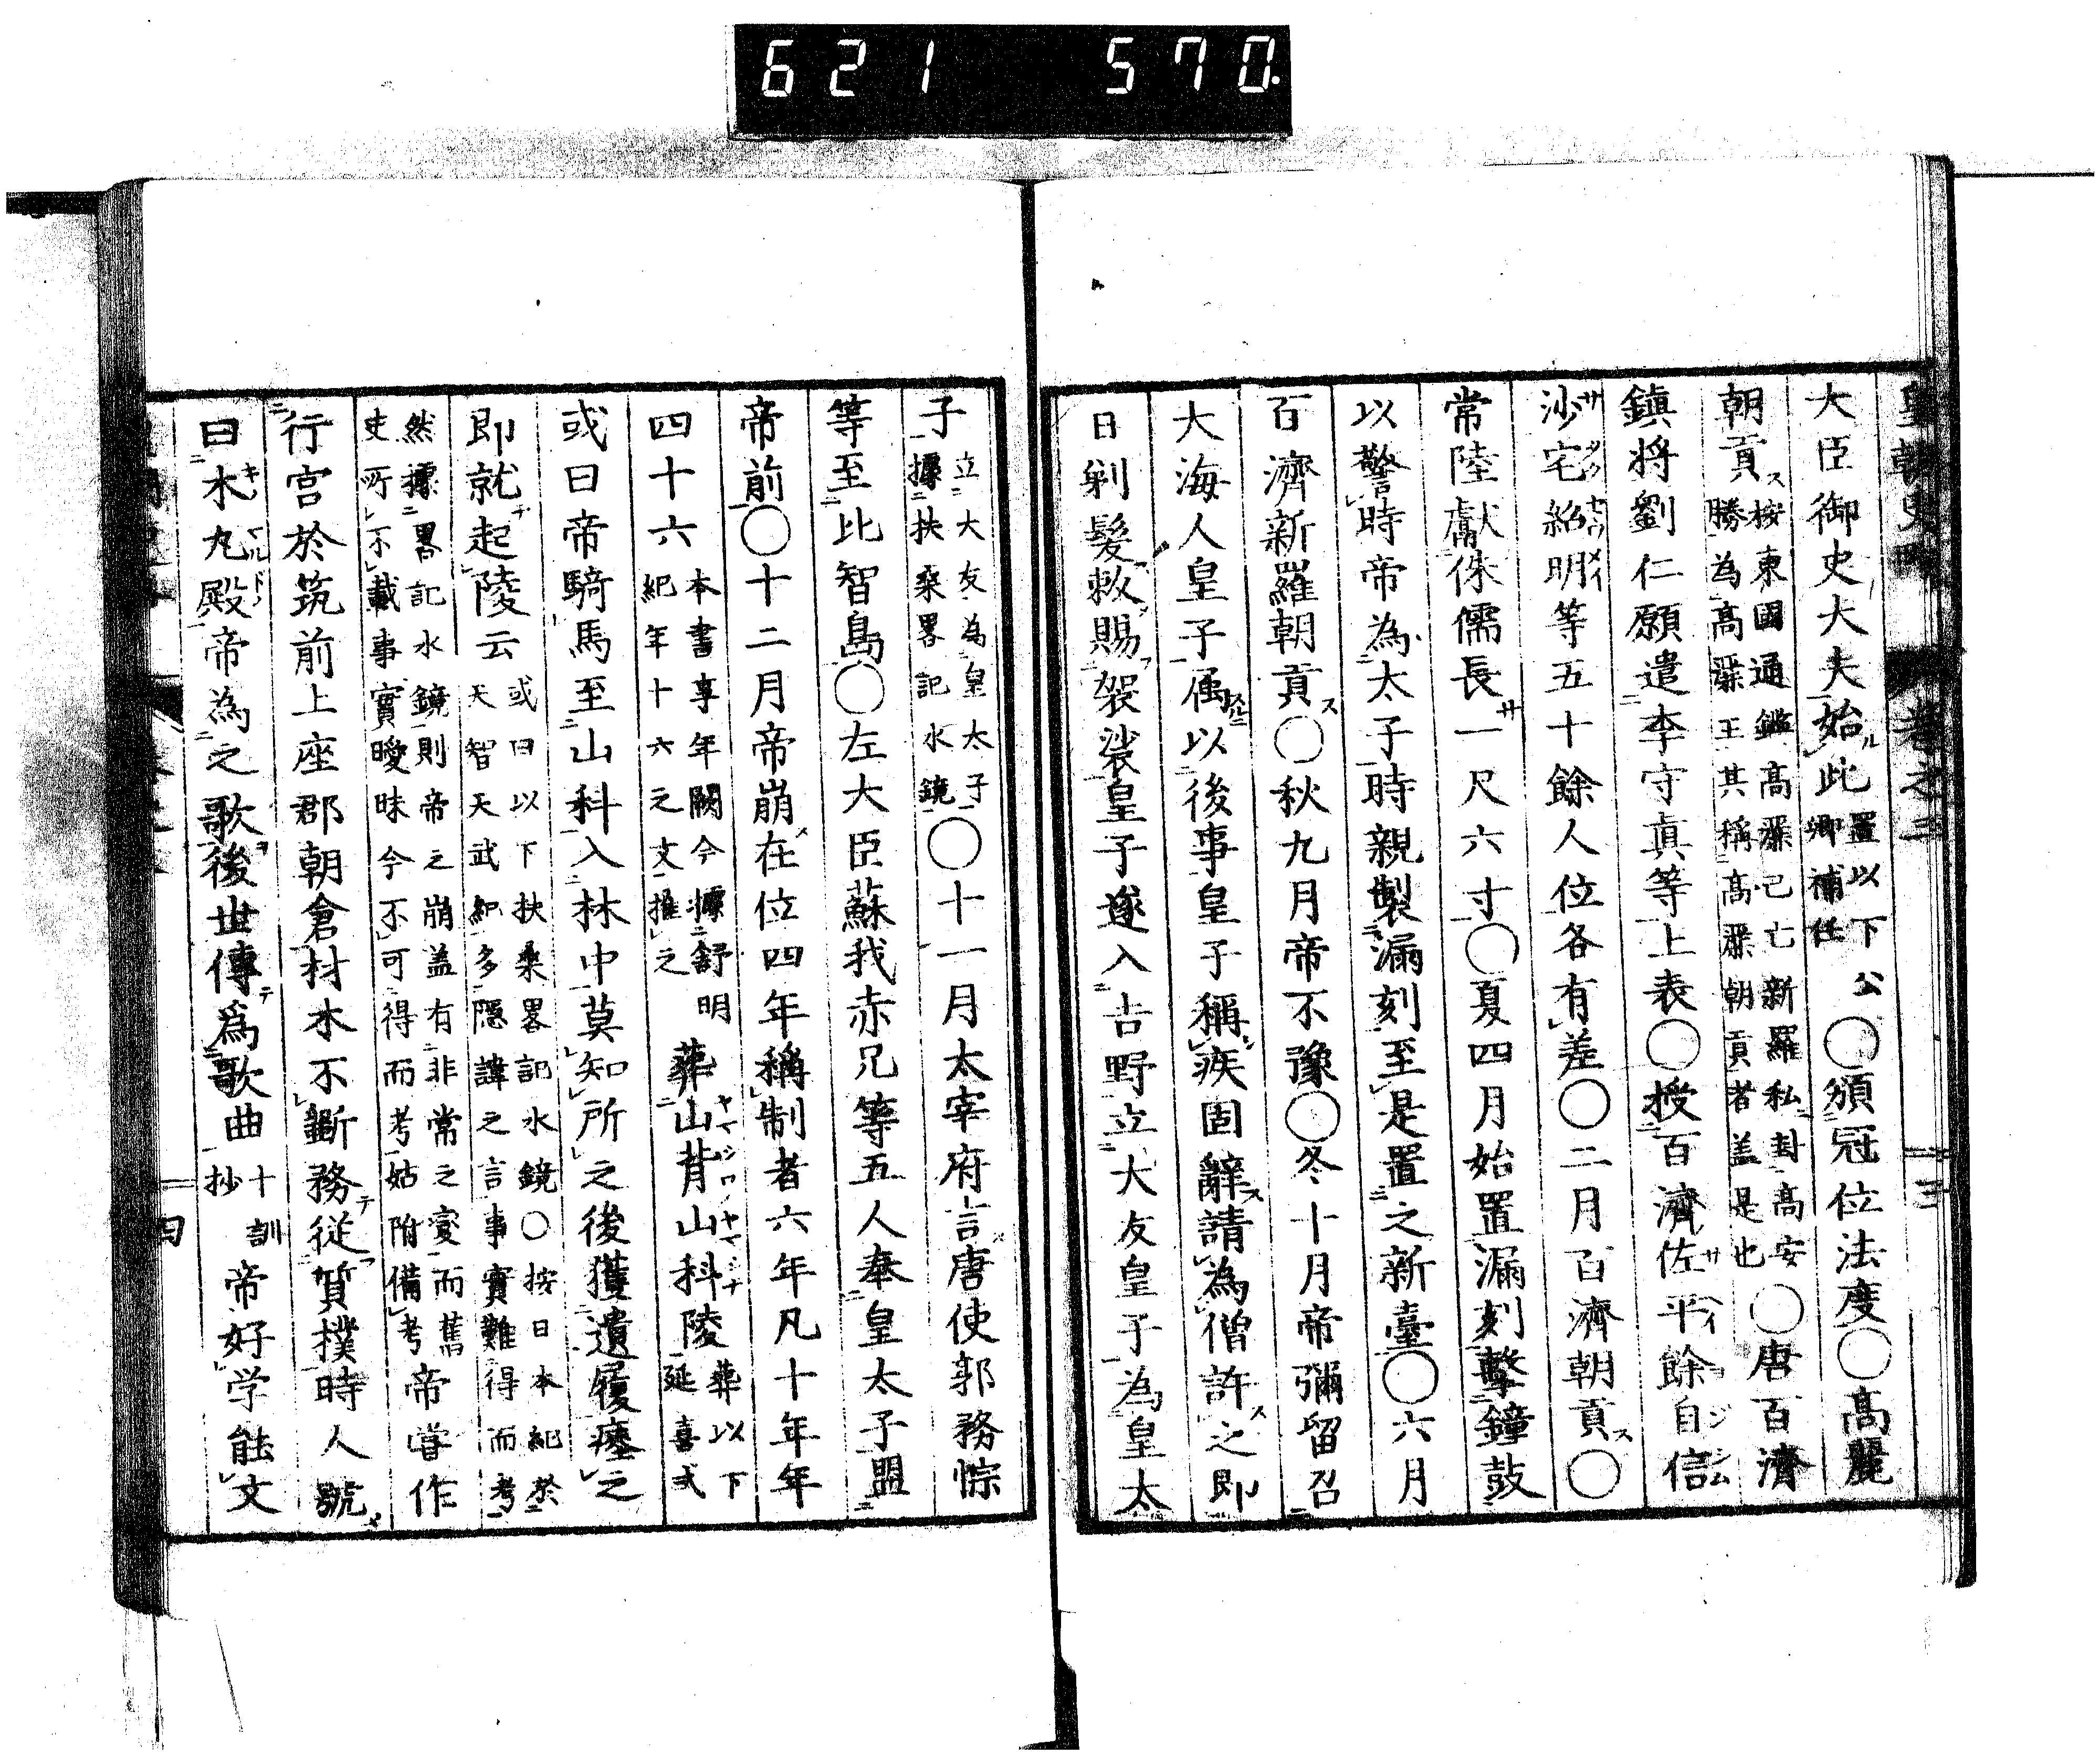 621 570.
皇朝史略 卷之二 三
大臣御史大夫始此置以下公卿補任○頒冠位法度○高麗
朝貢按東國通鑑高麗已亡新羅私封高安勝為高麗王其稱高麗朝貢者盖是也○唐百濟
鎮將劉仁願遣李守真等上表○授百濟佐平餘自信
沙宅紹明等五十餘人位各有差○二月百濟朝貢○
常陸獻侏儒長一尺六寸○夏四月始置漏刻擊鐘鼓
以警時帝為太子時親製漏刻至是置之新臺○六月
百濟新羅朝貢○秋九月帝不豫○冬十月帝彌留召
大海人皇子属以後事皇子稱疾固辭請為僧許之即
日剃髮敕賜袈裟皇子遂入吉野立大友皇子為皇太
子立大友為皇太子據扶桑畧記水鏡○十一月太宰府言唐使郭務悰
等至比智島○左大臣蘇我赤兄等五人奉皇太子盟
帝前○十二月帝崩在位四年稱制者六年凡十年年
四十六本書享年闕今據舒明紀年十六之文推之葬山背山科陵葬以下延喜式
或曰帝騎馬至山科入林中莫知所之後獲遺履瘞之
即就起陵云或曰以下扶桑畧記水鏡○按日本紀於天智天武紀多隱諱之言事實難得而考
然據畧記水鏡則帝之崩盖有非常之変而舊史所不載事實曖昧今不可得而考姑附備考帝嘗作
行宮於筑前上座郡朝倉材木不斷務従質撲時人號
曰木丸殿帝為之歌後世傳爲歌曲十訓抄帝好学能文
四